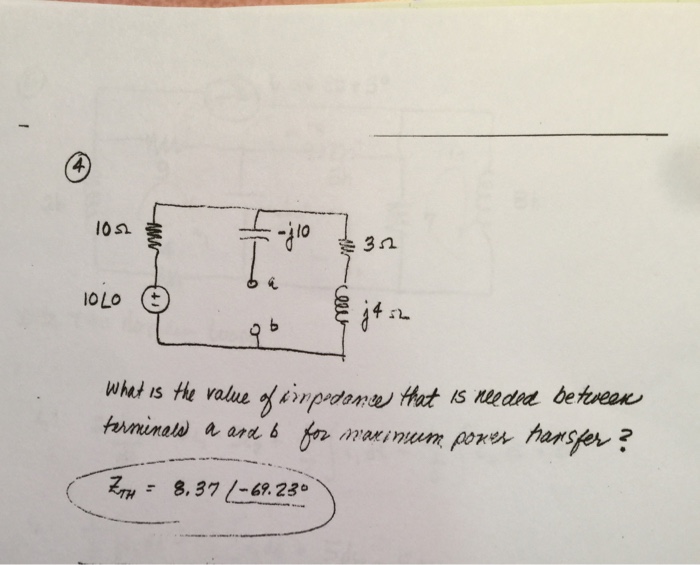 4
10Ω
-j10
3Ω
a
10∠0
+
j4Ω
b
What is the value of impedance that is needed between
terminals a and b for maximum power transfer?
Z_TH = 8.37 ∠-69.23°